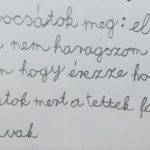 ocsátok meg: el
nem haragszom
hogy érezze ho
atok mert a tettek fo
vak